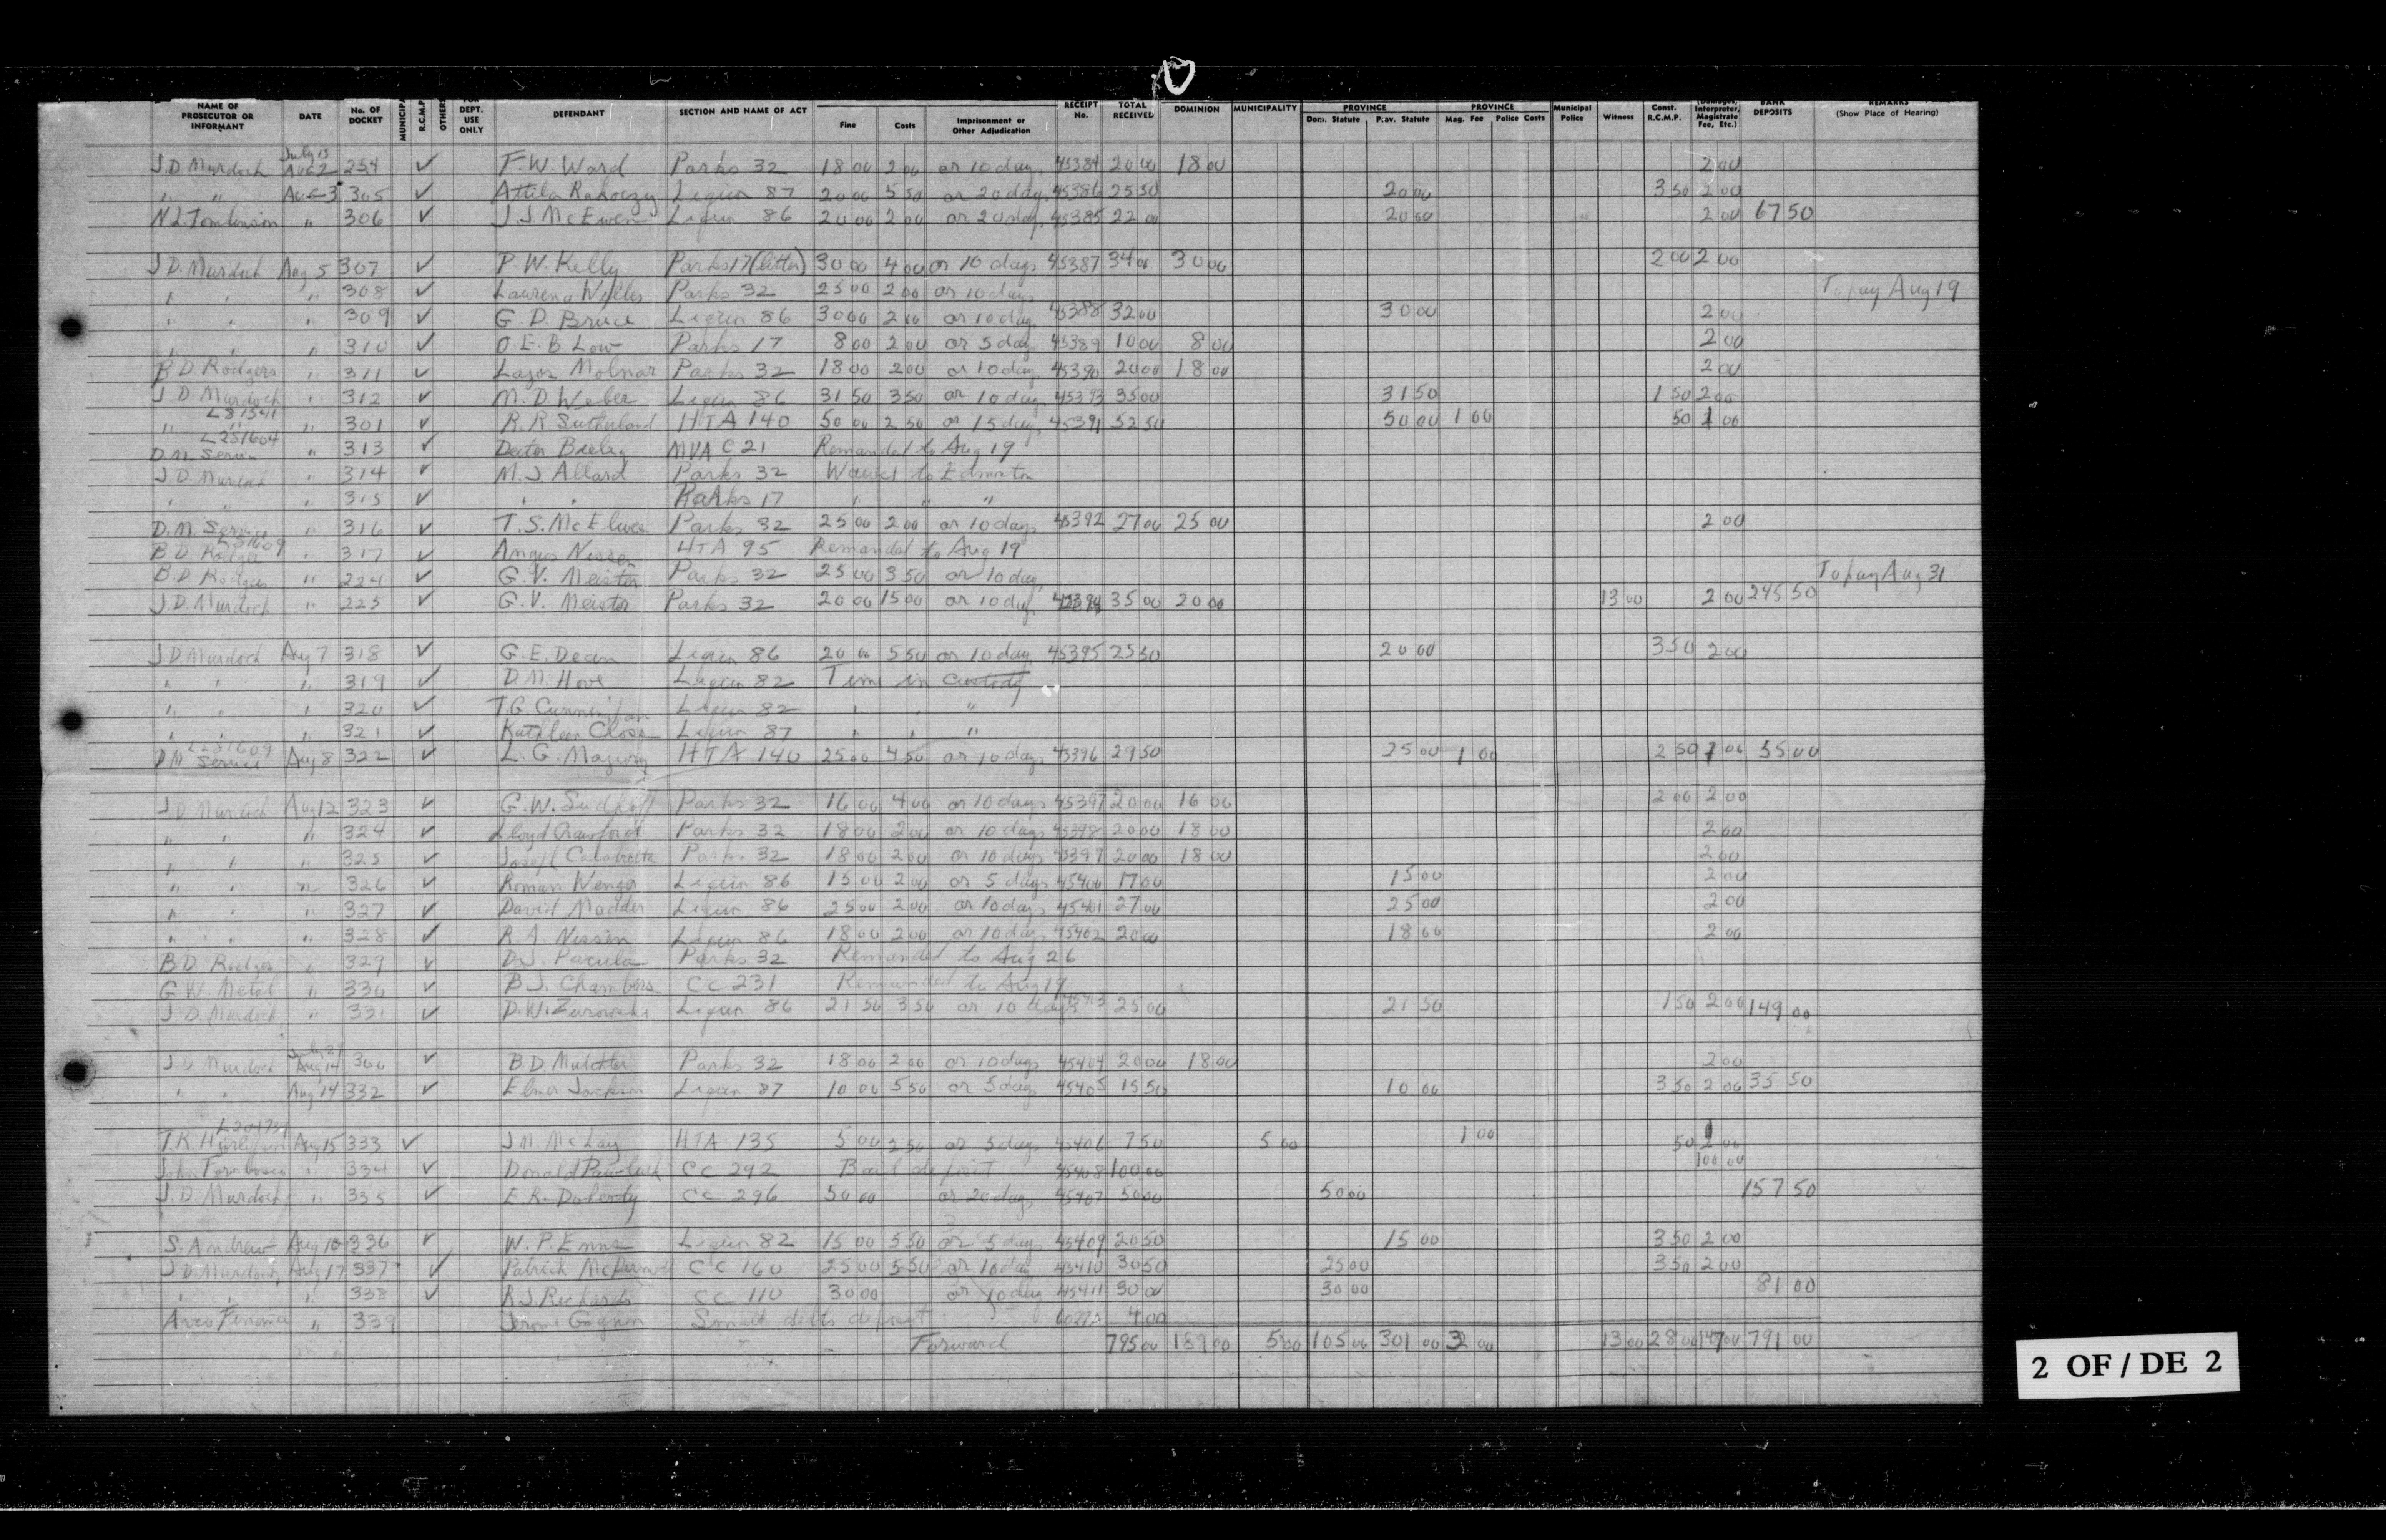 NAME OF PROSECUTOR OR INFORMANT DATE No. OF DOCKET MUNICIPA R.C.M.P. OTHERS FOR DEPT. USE ONLY DEFENDANT SECTION AND NAME OF ACT Fine Costs Imprisonment or Other Adjudication RECEIPT No. TOTAL RECEIVED DOMINION MUNICIPALITY PROVINCE Dom. Statute Prov. Statute PROVINCE Mag. Fee Police Costs Municipal Police Witness Const. R.C.M.P. (Damages, Interpreter, Magistrate Fee, Etc.) BANK DEPOSITS REMARKS (Show Place of Hearing)
July 15
J.D. Murdoch Aug 2 254 ✓ F.W. Ward Parks 32 18 00 2 00 or 10 days 45384 20 00 18 00 2 00
" " Aug 3 305 ✓ Attila Rakoczy Liquor 87 20 00 5 50 or 20 days 45386 25 50 20 00 3 50 2 00
N.L. Tomlinson " 306 ✓ J.J. McEwen Liquor 86 20 00 2 00 or 20 days 45385 22 00 20 00 2 00 67 50
J.D. Murdoch Aug 5 307 ✓ P.W. Kelly Parks 17 (litter) 30 00 4 00 or 10 days 45387 34 00 30 00 2 00 2 00
" " " 308 ✓ Parks 32 25 00 2 00 or 10 days To pay Aug 19
" " " 309 ✓ G.D. Bruce Liquor 86 30 00 2 00 or 10 days 45388 32 00 30 00 2 00
" " " 310 ✓ O.E.B. Low Parks 17 8 00 2 00 or 5 days 45389 10 00 8 00 2 00
B.D. Rodgers " 311 ✓ Lajos Molnar Parks 32 18 00 2 00 or 10 days 45390 20 00 18 00 2 00
J.D. Murdoch " 312 ✓ M.D. Weber Liquor 86 31 50 3 50 or 10 days 45393 35 00 31 50 1 50 2 00
" " " 301 ✓ R.R. Sutherland HTA 140 50 00 2 50 or 15 days 45391 52 50 50 00 1 00 50 1 00
L251604
D.M. Service " 313 ✓ MVA C 21 Remanded to Aug 19
J.D. Murdoch " 314 ✓ M.J. Allard Parks 32 Waived to Edmonton
" " " 315 ✓ " " Parks 17 " " "
D.M. Service " 316 ✓ T.S. McElwee Parks 32 25 00 2 00 or 10 days 45392 27 00 25 00 2 00
B.D. Rodgers " 317 ✓ Angus Nissen HTA 95 Remanded to Aug 19
B.D. Rodgers " 224 ✓ G.V. Meister Parks 32 25 00 3 50 or 10 days To pay Aug 31
J.D. Murdoch " 225 ✓ G.V. Meister Parks 32 20 00 15 00 or 10 days 45394 35 00 20 00 13 00 2 00 245 50
J.D. Murdoch Aug 7 318 ✓ G.E. Dean Liquor 86 20 00 5 50 or 10 days 45395 25 50 20 00 3 50 2 00
" " " 319 ✓ D.M. Hove Liquor 82 Time in custody
" " " 320 ✓ T.G. Liquor 82 " " "
" " " 321 ✓ Kathleen Close Liquor 87 " " "
L251609
D.M. Service Aug 8 322 ✓ L.G. HTA 140 25 00 4 50 or 10 days 45396 29 50 25 00 1 00 2 50 1 00 55 00
J.D. Murdoch Aug 12 323 ✓ G.W. Sudhoff Parks 32 16 00 4 00 or 10 days 45397 20 00 16 00 2 00 2 00
" " " 324 ✓ Lloyd Crawford Parks 32 18 00 2 00 or 10 days 45398 20 00 18 00 2 00
" " " 325 ✓ Joseph Parks 32 18 00 2 00 or 10 days 45399 20 00 18 00 2 00
" " " 326 ✓ Roman Wenger Liquor 86 15 00 2 00 or 5 days 45400 17 00 15 00 2 00
" " " 327 ✓ David Madder Liquor 86 25 00 2 00 or 10 days 45401 27 00 25 00 2 00
" " " 328 ✓ R.A. Nissen Liquor 86 18 00 2 00 or 10 days 45402 20 00 18 00 2 00
B.D. Rodgers " 329 ✓ D.J. Pacula Parks 32 Remanded to Aug 26
G.W. Metal " 330 ✓ B.J. Chambers CC 231 Remanded to Aug 19
J.D. Murdoch " 331 ✓ D.W. Liquor 86 21 50 3 50 or 10 days 45403 25 00 21 50 1 50 2 00 149 00
J.D. Murdoch Aug 14 300 ✓ B.D. Parks 32 18 00 2 00 or 10 days 45404 20 00 18 00 2 00
" " Aug 14 332 ✓ Elmer Jackson Liquor 87 10 00 5 50 or 5 days 45405 15 50 10 00 3 50 2 00 35 50
T.K. Aug 15 333 ✓ J.M. McLay HTA 135 5 00 2 50 or 5 days 45406 7 50 5 00 1 00 50 1 00
" 334 ✓ Donald CC 292 Bail deposit 45408 100 00 100 00
J.D. Murdoch " 335 ✓ E.R. Doherty CC 296 50 00 or 20 days 45407 50 00 50 00 157 50
S. Andrew Aug 16 336 ✓ W.P. Enns Liquor 82 15 00 5 50 or 5 days 45409 20 50 15 00 3 50 2 00
J.D. Murdoch Aug 17 337 ✓ Patrick CC 160 25 00 5 50 or 10 days 45410 30 50 25 00 3 50 2 00
" " " 338 ✓ R.J. Richards CC 110 30 00 or 10 days 45411 30 00 30 00 81 00
" 339 Jerome Gagnon Small debts deposit 4 00
Forward 795 00 189 00 5 00 105 00 301 00 3 00 13 00 28 00 147 00 791 00
2 OF / DE 2